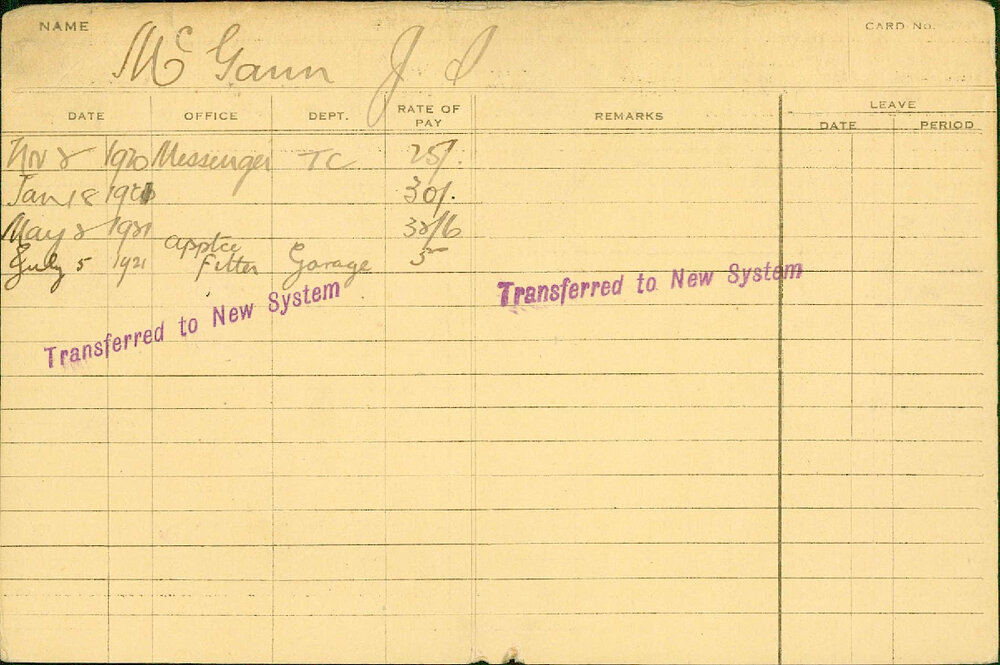 NAME McGann J CARD No.
LEAVE
DATE OFFICE DEPT. RATE OF PAY REMARKS DATE PERIOD
Nov 8 1920 Messenger TC 25/.
Jan 18 1921 30/.
May 8 1921 32/6
July 5 1921 apptce Fitter Garage 5
Transferred to New System
Transferred to New System